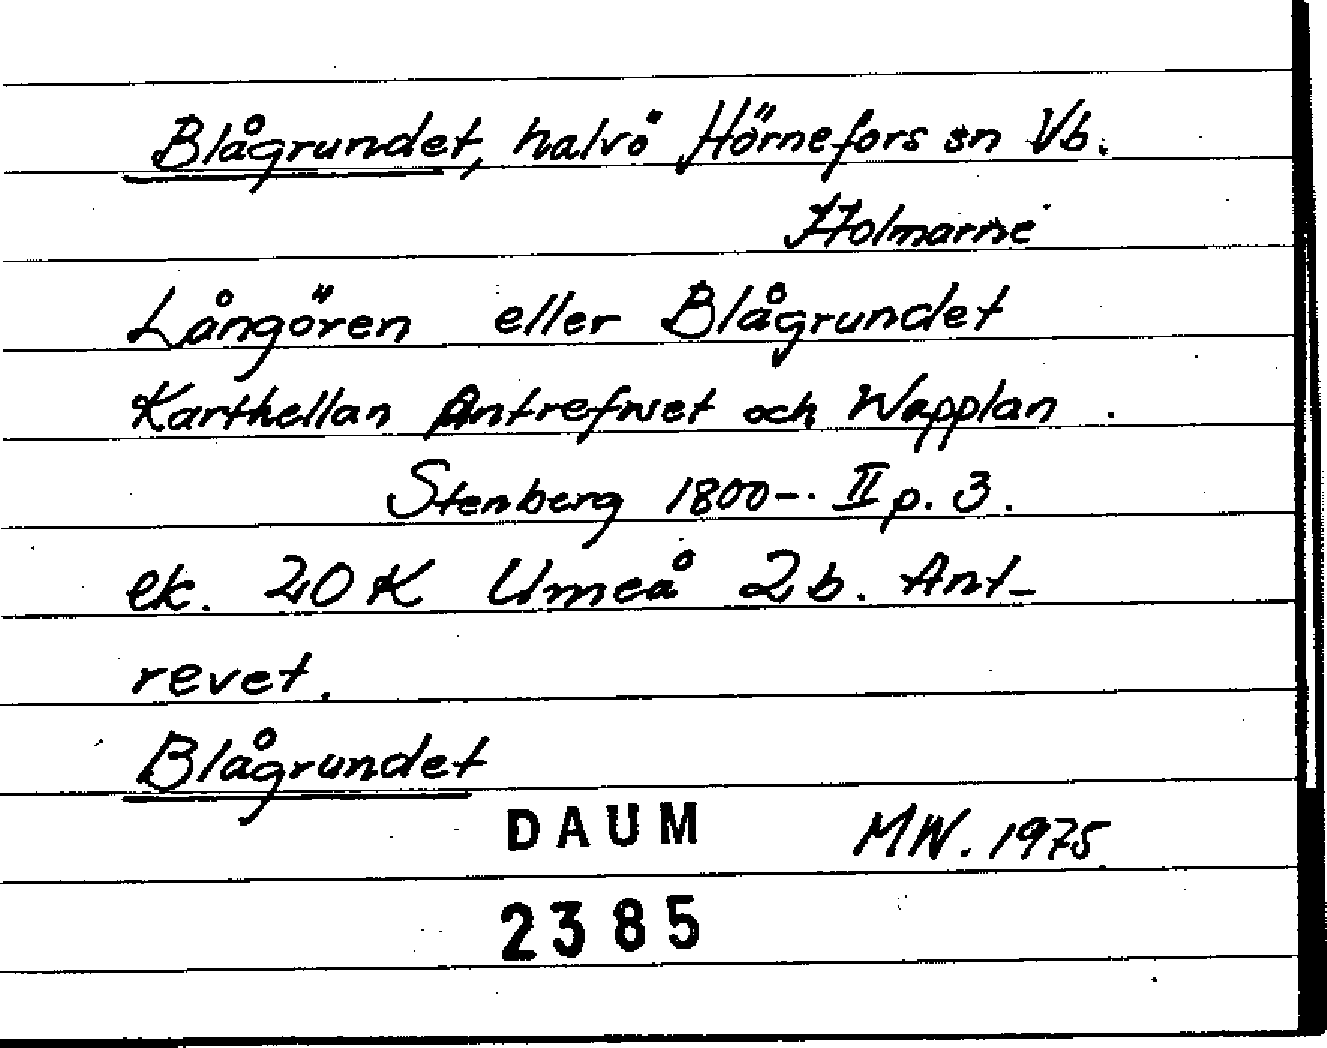 Blågrundet, halvö Hörnefors sn Vb.
Holmarne
Långören eller Blågrundet
Karthellan Antrefwet och Wapplan.
Stenberg 1800-. II p. 3.
ek. 20 K Umeå 2b. Ant-
revet.
Blågrundet
DAUM MW. 1975
2385